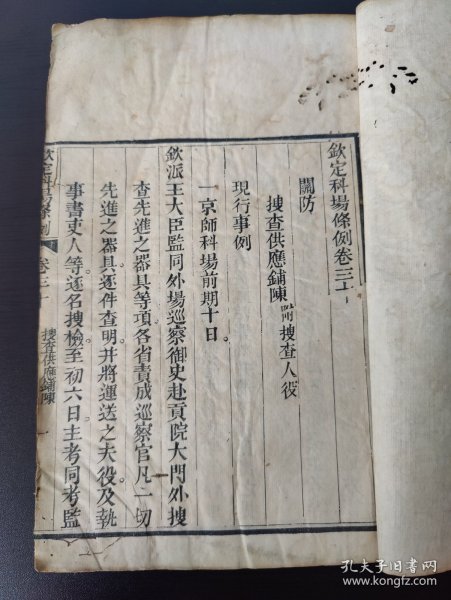 欽定科場條例卷三十
關防
搜查供應鋪陳附搜查人役
現行事例
一京師科場前期十日
欽派王大臣監同外場巡察御史赴貢院大門外搜
查先進之器具等項各省責成巡察官凡一切
先進之器具逐件查明并將運送之夫役及執
事書吏人等逐名搜檢至初六日主考同考監
欽定科場條例
卷三十
搜查供應鋪陳
一
孔夫子旧书网
www.kongfz.com